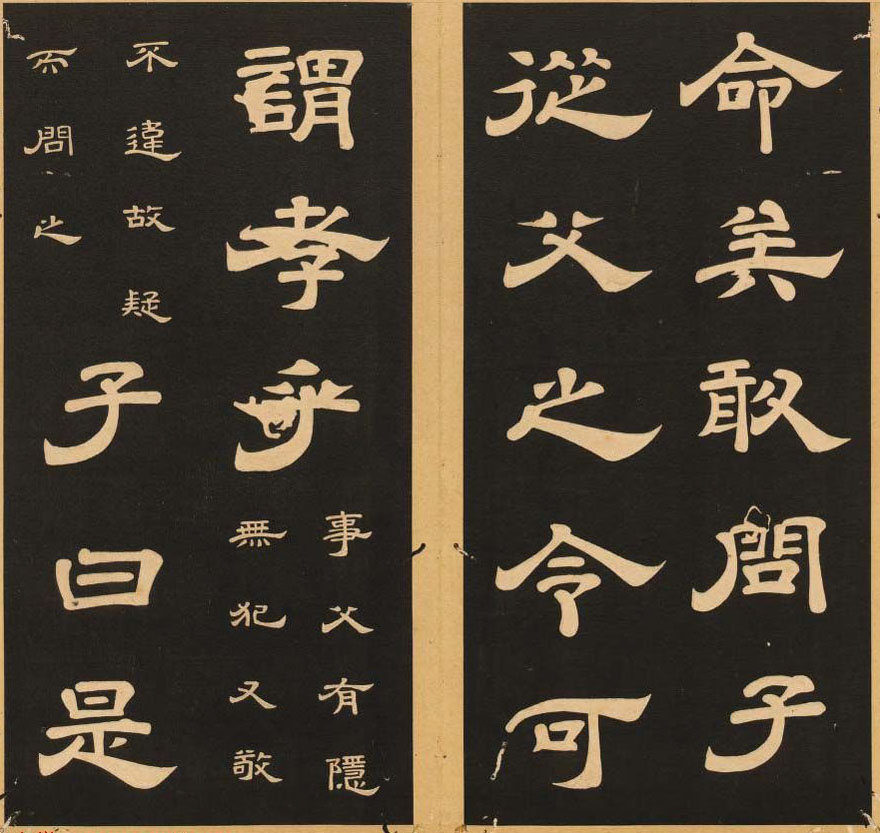 命矣敢問子
從父之令可
謂孝乎
事父有隱
無犯又敬
不違故疑
而問之
子曰是